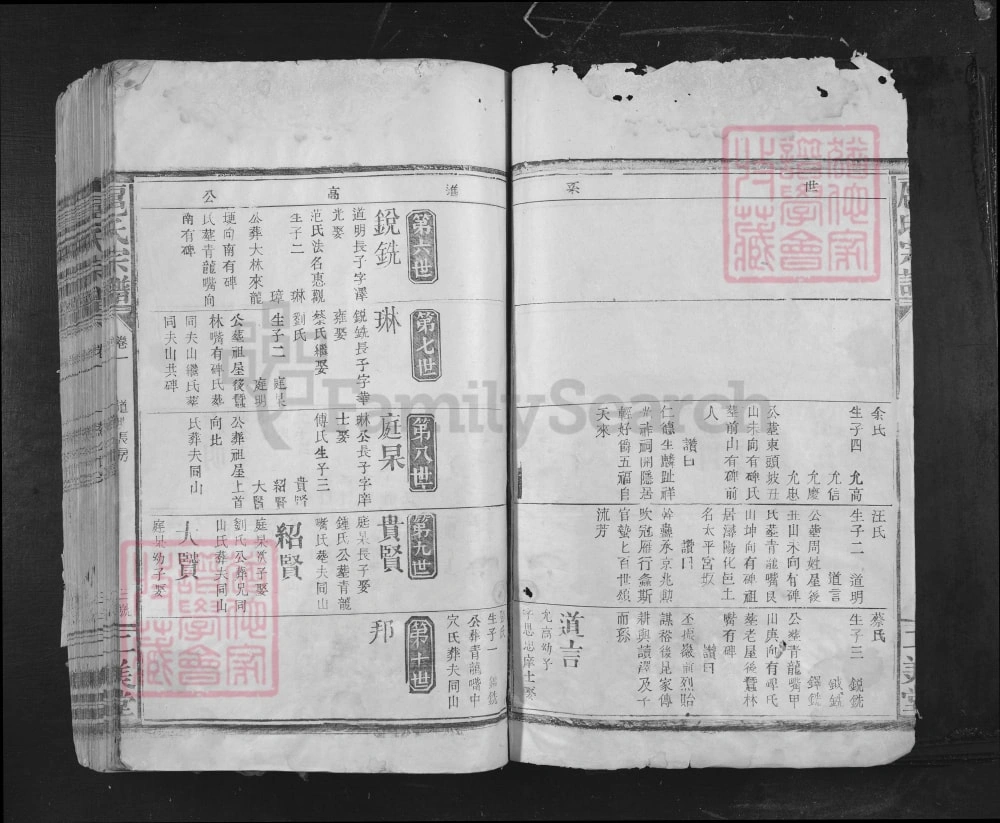 世系
余氏
生子四 允高
允信
允慶
允惠
公塟東頭坡丑
山未向有碑氏
塟前山有碑前
人
讃曰
仁龍生麟趾祥
開隱居
輕好爵五福自
天來
汪氏
生子二 道明
道言
公塟周姓屋後
丑山未向有碑
氏塟青龍嘴艮
山坤向有碑祖
居潯陽化邑土
名太平宮坂
讃曰
吹冠雁行螽斯
官蟄匕百世娘
流方
蔡氏
生子三 鋭銑
鉞銑
鐸銑
公塟青龍嘴甲
山庚向有碑氏
塟老屋後蠶林
嘴有碑
讃曰
丕承巖前烈貽
謀裕後昆家傳
耕與讀澤及子
而孫
道言
允高幼子
字思忠庠士娶
進高公
厲氏宗譜
卷一
道明長房
三美堂
第六世
鋭銑
道明長子字澤
光娶
范氏法名惠觀
生子二 琳
璋
公塟大林來龍
埂向南有碑
氏塟青龍嘴向
南有碑
第七世
琳
鋭銑長子字華
雍娶
蔡氏繼娶
劉氏
生子二 庭杲
庭明
公塟祖屋後蠶
林嘴有碑氏塟
同夫山繼氏塟
同夫山共碑
第八世
庭杲
琳公長子字庠
士娶
傅氏生子三
貴賢
紹賢
大賢
公塟祖屋上首
向北
氏塟夫同山
第九世
貴賢
庭杲長子娶
鍾氏公塟青龍
嘴氏塟夫同山
紹賢
庭杲次子娶
劉氏公塟兄同
山氏塟夫同山
大賢
庭杲幼子娶
第十世
邦
生子一
公塟青龍嘴中
穴氏葬夫同山
FamilySearch